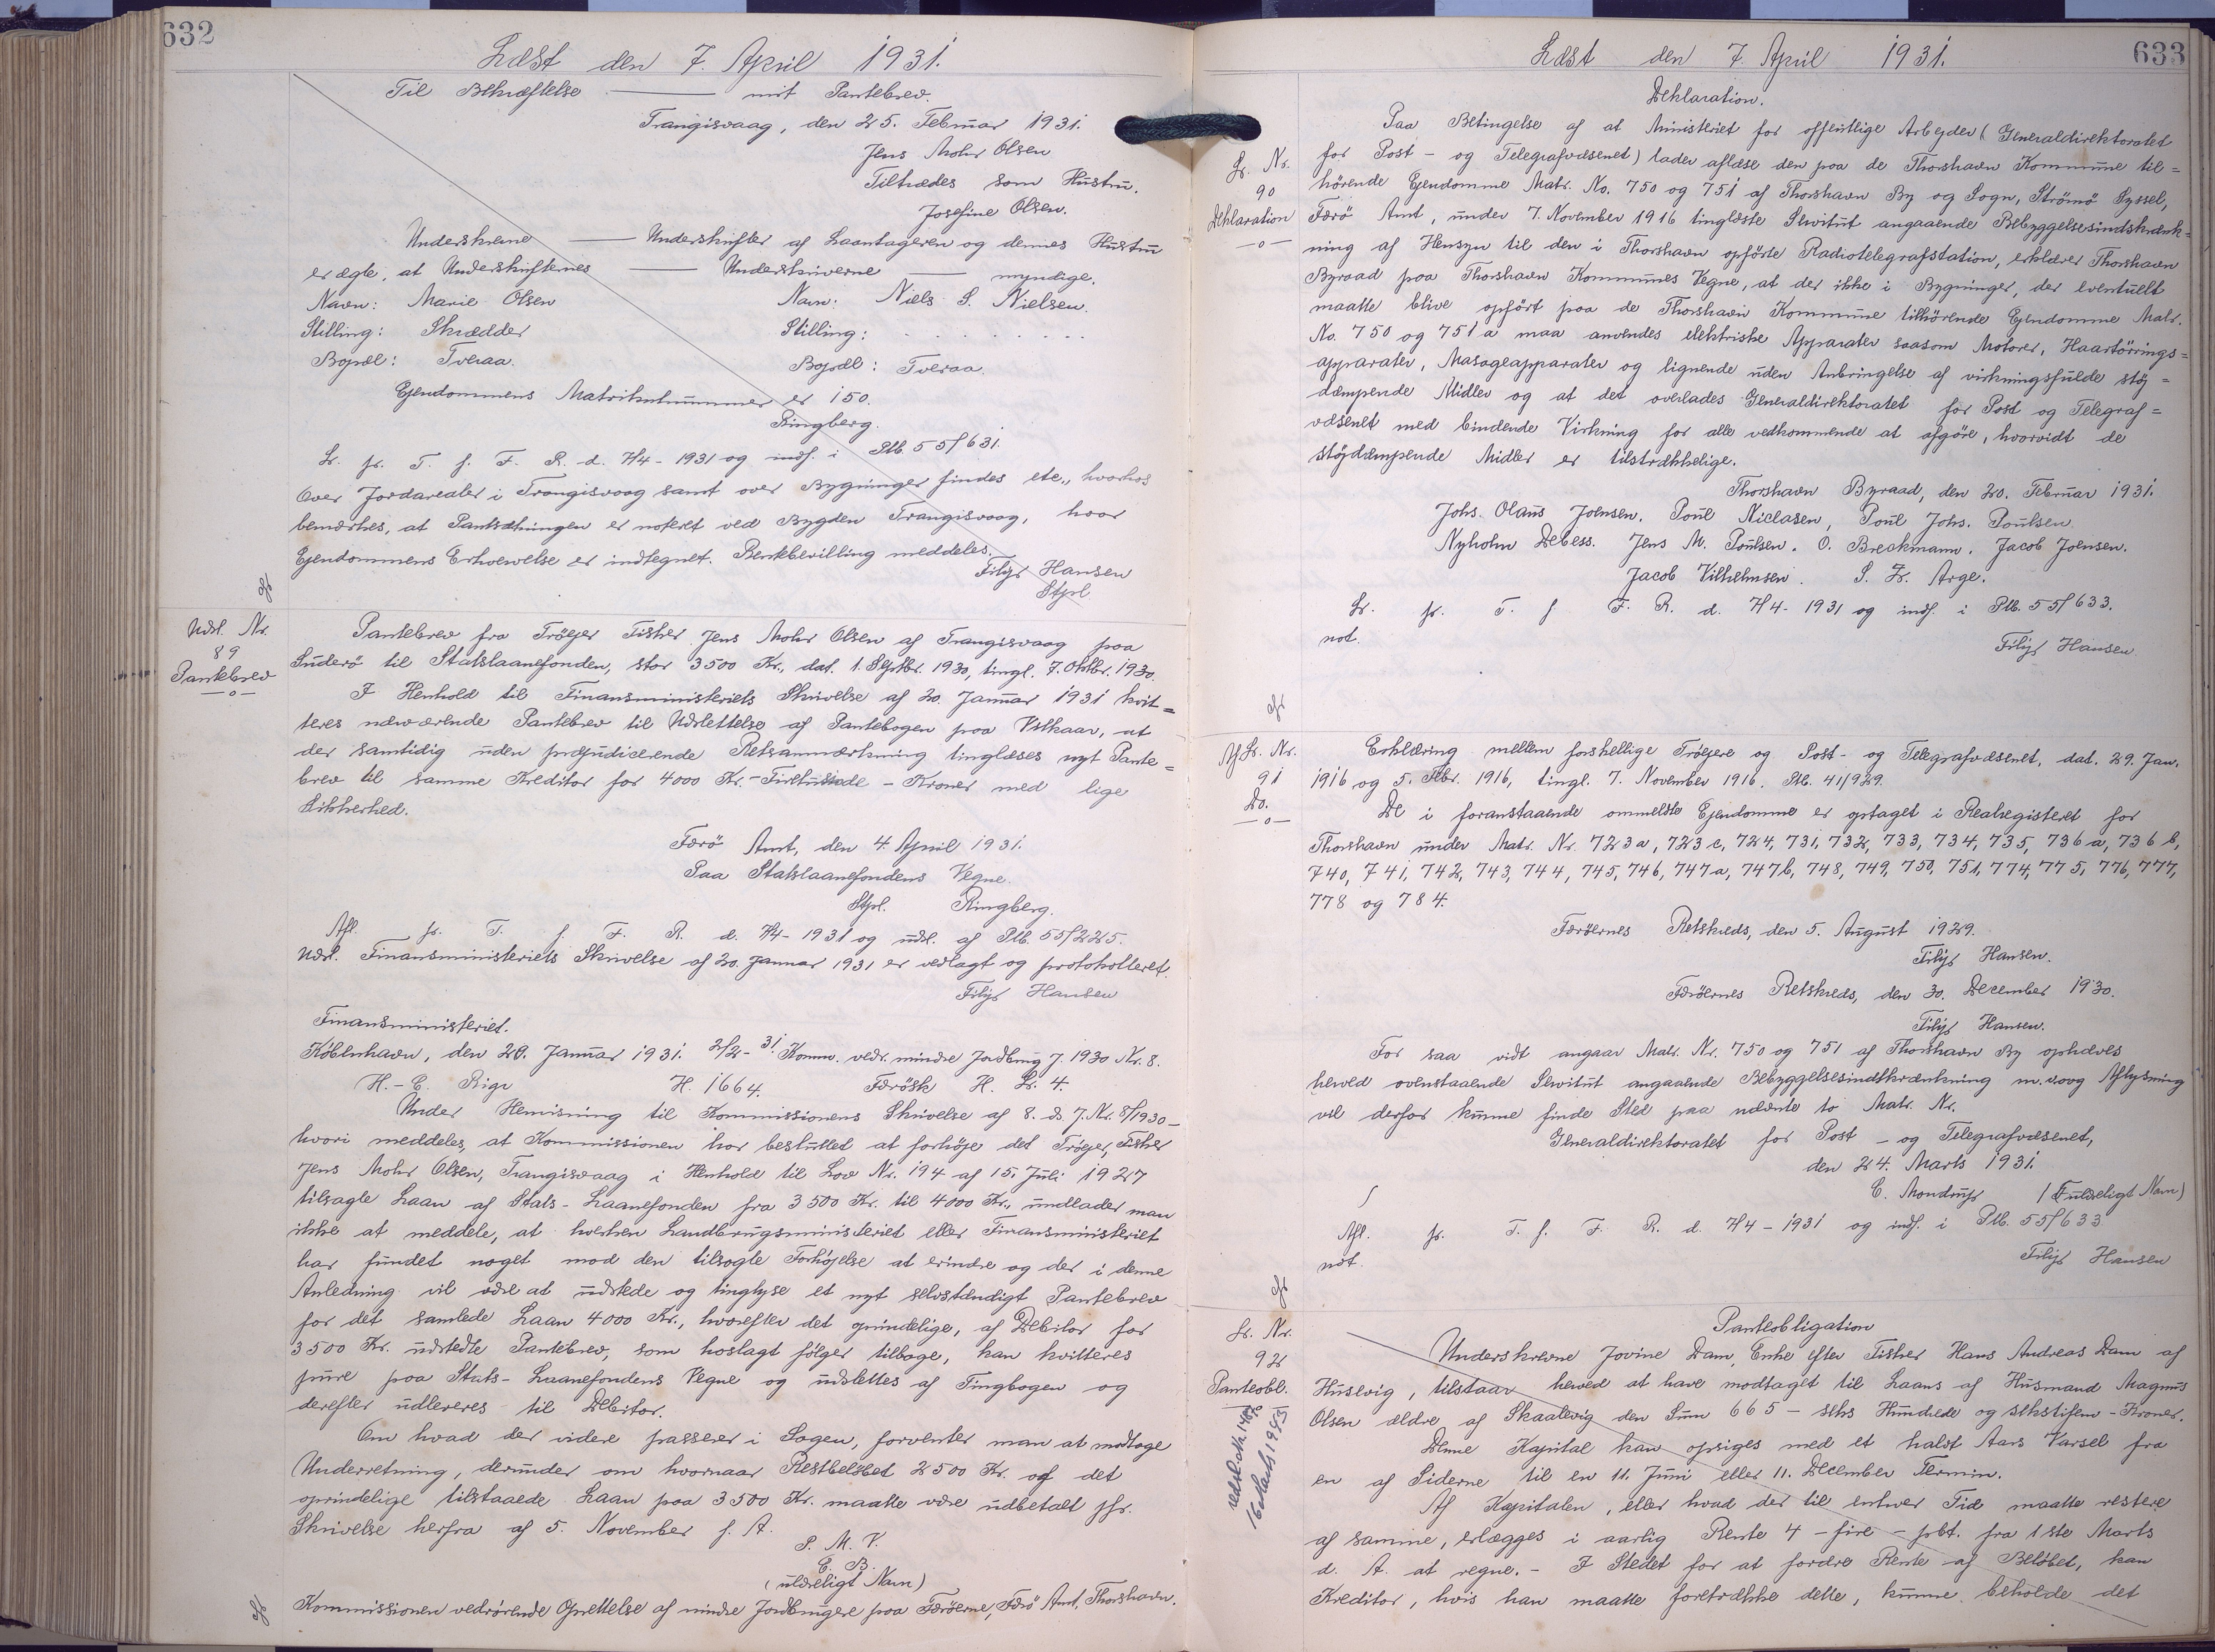 632
Læst den 7. April 1931.
Til Bekræftelse — mit Pantebrev.
Trangisvaag, den 25. Februar 1931.
Jens Mohr Olsen
Tiltrædes som Hustru.
Josefine Olsen.
Underskrevne — Underskrifter af Laantageren og dennes Hustru
er ægte, at Underskrifternes — Underskriverne — myndige.
Navn: Marie Olsen Navn: Niels S. Nielsen.
Stilling: Skrædder Stilling: . . . . . . .
Bopæl: Tveraa. Bopæl: Tveraa.
Ejendommens Matrikulnummer er 150.
Ringberg.
Lr. fr. T. f. F. R. d. 7/4-1931 og indf. i Ptb. 55/631.
Over Jordarealer i Trangisvaag samt over Bygninger findes etc., hvorhos
bemærkes, at Pantsætningen er noteret ved Bygden Trangisvaag, hvor
Ejendommens Erhvervelse er indtegnet. Benkbevilling meddeles.
Filip Hansen
Stpl.
Udsl. Nr.
89
Pantebrev
—o—
Pantebrev fra Trøejer Fisker Jens Mohr Olsen af Trangisvaag paa
Suderö til Statslaanefonden, stor 3500 Kr., dat. 1. Septbr. 1930, tingl. 7. Oktbr. 1930.
I Henhold til Finansministeriets Skrivelse af 20. Januar 1931 kvit=
teres nærværende Pantebrev til Udslettelse af Pantebogen paa Vilkaar, at
der samtidig uden præjudicerende Retsanmærkning tinglæses nyt Pante=
brev til samme Kreditor for 4000 Kr. - Firetusinde - Kroner med lige
Sikkerhed.
Færö Amt, den 4. April 1931.
Paa Statslaanefondens Vegne.
Stpl. Ringberg.
Afl. fr. T. f. F. R. d. 7/4-1931 og udsl. af Ptb. 55/225.
Udsl. Finansministeriets Skrivelse af 20. Januar 1931 er vedlagt og protokolleret.
Filip Hansen
Finansministeriet.
København, den 20. Januar 1931. 2/2-31. Komm. vedr. mindre Jordbrug J. 1930 Nr. 8.
H.-C. Bigv H. 1664. Færösk H. Lr. 4.
Under Henvisning til Kommissionens Skrivelse af 8. ds J. Nr. 8/1930 -
hvori meddeles, at Kommissionen har besluttet at forhöje det Trøejer, Fisker
Jens Mohr Olsen, Trangisvaag i Henhold til Lov Nr. 194 af 15. Juli 1927
tilsagte Laan af Stats-Laanefonden fra 3500 Kr. til 4000 Kr., undlader man
ikke at meddele, at hverken Landbrugsministeriet eller Finansministeriet
har fundet noget mod den tilsagte Forhöjelse at erindre og der i denne
Anledning vil være at udstede og tinglyse et nyt selvstændigt Pantebrev
for det samlede Laan 4000 Kr., hvorefter det oprindelige, af Debitor for
3500 Kr. udstedte Pantebrev, som hoslagt fölger tilbage, kan kvitteres
paa Stats-Laanefondens Vegne og udslettes af Tingbogen og
derefter udleveres til Debitor.
Om hvad der videre passerer i Sagen, forventer man at modtage
Underretning, derunder om hvornaar Restbelöbet 2500 Kr. af det
oprindelige tilstaaede Laan paa 3500 Kr. maatte være udbetalt jfr.
Skrivelse herfra af 5. November f. A.
P. M. V.
E. B.
(ulæseligt Navn)
Kommissionen vedrörende Oprettelse af mindre Jordbrugere paa Færöerne, Færö Amt, Thorshavn.
633
Læst den 7. April 1931.
Deklaration.
Lr. Nr.
90
Deklaration
—o—
Paa Betingelse af at Ministeriet for offentlige Arbejder (Generaldirektoratet
for Post- og Telegrafvæsenet) lader aflæse den paa de Thorshavn Kommune til=
hörende Ejendomme Matr. No. 750 og 751 af Thorshavn By og Sogn, Strömö Syssel,
Færö Amt, under 7. November 1916 tinglæste Servitut angaaende Bebyggelsesindskrænk=
ning af Hensyn til den i Thorshavn opförte Radiotelegrafstation, erklærer Thorshavn
Byraad paa Thorshavn Kommunes Vegne, at der ikke i Bygninger, der eventuelt
maatte blive opfört paa de Thorshavn Kommune tilhörende Ejendomme Matr.
No. 750 og 751a maa anvendes elektriske Apparater saasom Motorer, Haartörrings=
apparater, Masageapparater og lignende uden Anbringelse af virkningsfulde stöj=
dæmpende Midler og at det overlades Generaldirektoratet for Post og Telegraf=
væsenet med bindende Virkning for alle vedkommende at afgöre, hvorvidt de
stöjdæmpende Midler er tilstrækkelige.
Thorshavn Byraad, den 20. Februar 1931.
Johs. Olaus Joensen. Poul Niclasen, Poul Johs. Poulsen.
Nyholm Debess. Jens M. Poulsen. O. Breckmann. Jacob Joensen.
Jacob Vilhelmsen. S. Fr. Arge.
Lr. fr. T. f. F. R. d. 7/4-1931 og indf. i Ptb. 55/633.
not.
Filip Hansen
Af Lr. Nr.
91
Do.
—o—
Erklæring mellem forskellige Trøejere og Post- og Telegrafvæsenet, dat. 29. Jan.
1916 og 5. Febr. 1916, tingl. 7. November 1916. Ptb. 41/929.
De i foranstaaende ommeldte Ejendomme er optaget i Realregisteret for
Thorshavn under Matr. Nr. 723a, 723c, 724, 731, 732, 733, 734, 735, 736a, 736b,
740, 741, 742, 743, 744, 745, 746, 747a, 747b, 748, 749, 750, 751, 774, 775, 776, 777,
778 og 784.
Færöernes Retskreds, den 5. August 1929.
Filip Hansen.
Færöernes Retskreds, den 30. December 1930.
Filip Hansen.
For saa vidt angaar Matr. Nr. 750 og 751 af Thorshavn By ophæves
herved ovenstaaende Servitut angaaende Bebyggelsesindskrænkning m.v. og Aflysning
vil derfor kunne finde Sted paa nævnte to Matr. Nr.
Generaldirektoratet for Post- og Telegrafvæsenet,
den 24. Marts 1931.
C. Mondrup /(Ulæseligt Navn)
Afl. fr. T. f. F. R. d. 7/4-1931 og indf. i Ptb. 55/633
not.
Filip Hansen
Lr. Nr.
92
Panteobl.
—o—
Panteobligation
Underskrevne Jovine Dam, Enke efter Fisker Hans Andreas Dam af
Husevig, tilstaar herved at have modtaget til Laans af Husmand Magnus
Olsen ældre af Skaalevig den Sum 665 - seks Hundrede og sekstifem - Kroner.
Denne Kapital kan opsiges med et halvt Aars Varsel fra
en af Siderne til en 11. Juni eller 11. December Termin.
Af Kapitalen, eller hvad der til enhver Tid maatte restere
af samme, erlægges i aarlig Rente 4 - fire - pCt. fra 1ste Marts
d. A. at regne. - I Stedet for at fordre Rente af Belöbet, kan
Kreditor, hvis han maatte foretrække dette, kunne beholde det